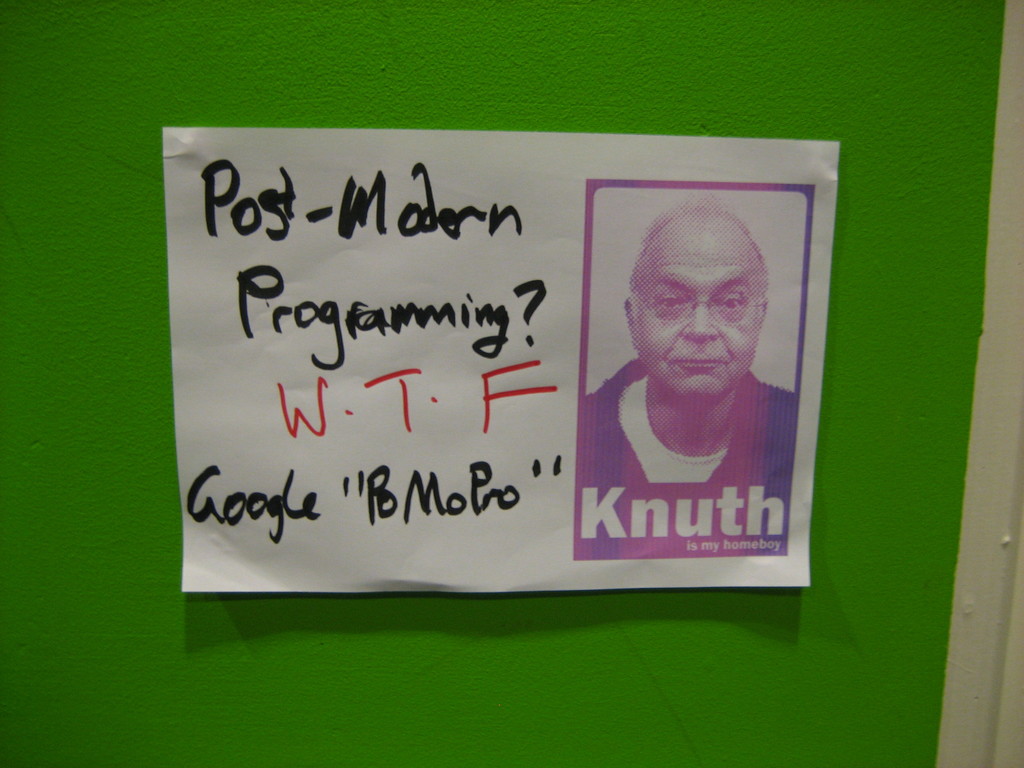 Post-Modern
Programming?
W.T.F
Google "PoMoPro"
Knuth
is my homeboy